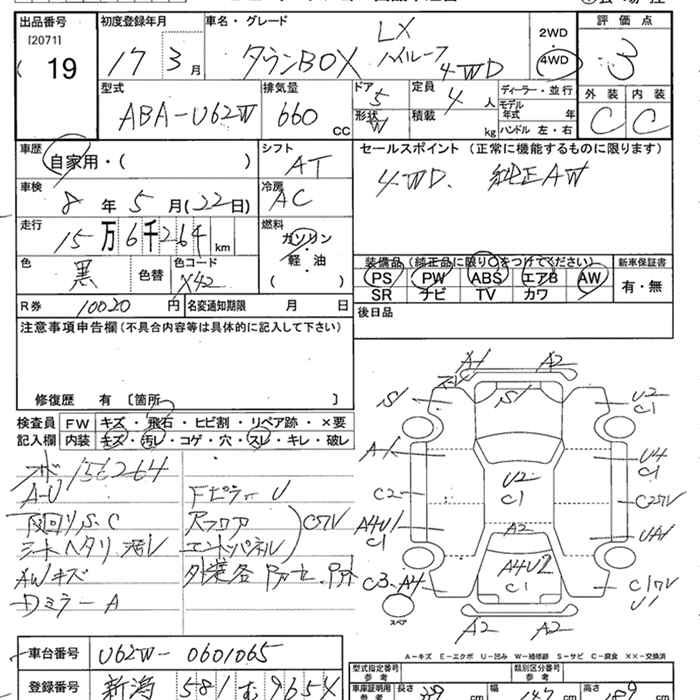 出品番号
[2071]
19
初度登録年月
17 3月
車名・グレード
LX
タウンBOX ハイルーフ
4WD
2WD
4WD
評価点
3
外装 内装
C C
型式
ABA-U62W
排気量
660 CC
ドア
5
形状
W
定員
4 人
積載
kg
ディーラー・並行
モデル
年式 年
ハンドル 左・右
車歴
自家用・( )
シフト
AT
セールスポイント (正常に機能するものに限ります)
4WD. 純正AW
車検
8年 5月(22日)
冷房
AC
走行
15万6千264 km
燃料
ガソリン
軽・油
( )
色
黒
色替
色コード
X42
装備品 (純正品に限り○をつけてください)
新車保証書
PS PW ABS エアB AW
SR ナビ TV カワ
有・無
R券 10020円
名変通知期限 月 日
後日品
注意事項申告欄(不具合内容等は具体的に記入して下さい)
修復歴 有 〔箇所 〕
検査員
記入欄
FW キズ・飛石・ヒビ割・リペア跡・×要
内装 キズ・汚レ・コゲ・穴・スレ・キレ・破レ
156264
A-U
下回りS.C
シートヘタリ 汚レ
AWキズ
DミラーA
FピラーU
Rフロア
エンドパネル
C57V
外装各
A1 A2
S1 S1
U2
C1
A1
U4
C1
C2
U2
C1
A4U1
C1
A2
A4U2
C1
C3 A4
U1
スペア
A2 A2
A-キズ E-エクボ U-凹み W-補修跡 S-サビ C-腐食 XX-交換済
車台番号 U62W-0601065
型式指定番号
参考
類別区分番号
参考
登録番号 新潟 581 む 9654
車庫証明用
参考
長さ
cm
幅
cm
高さ
cm